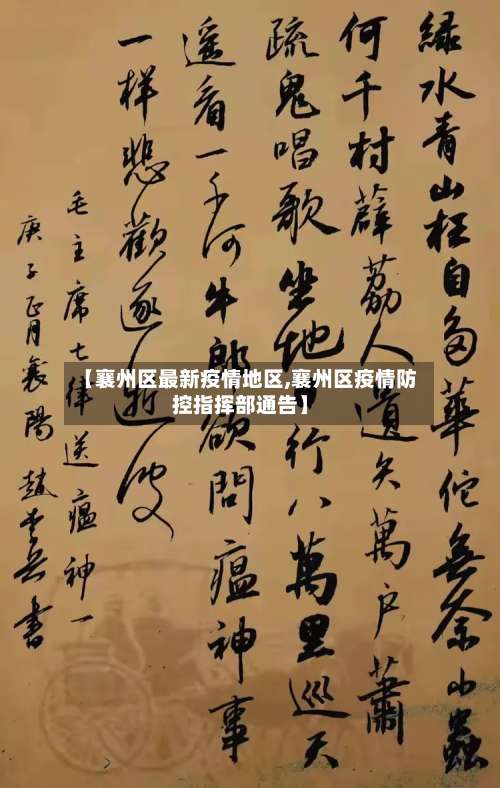 緑水青山枉自多華佗無奈小蟲
何千村薜荔人遺矢萬户蕭
疏鬼唱歌坐地行八萬里巡天
遥看一千河牛郎欲問瘟神事
一样悲歡逐逝波
毛主席七律送瘟神一
庚子正月襄陽趙書
【襄州区最新疫情地区,襄州区疫情防
控指挥部通告】